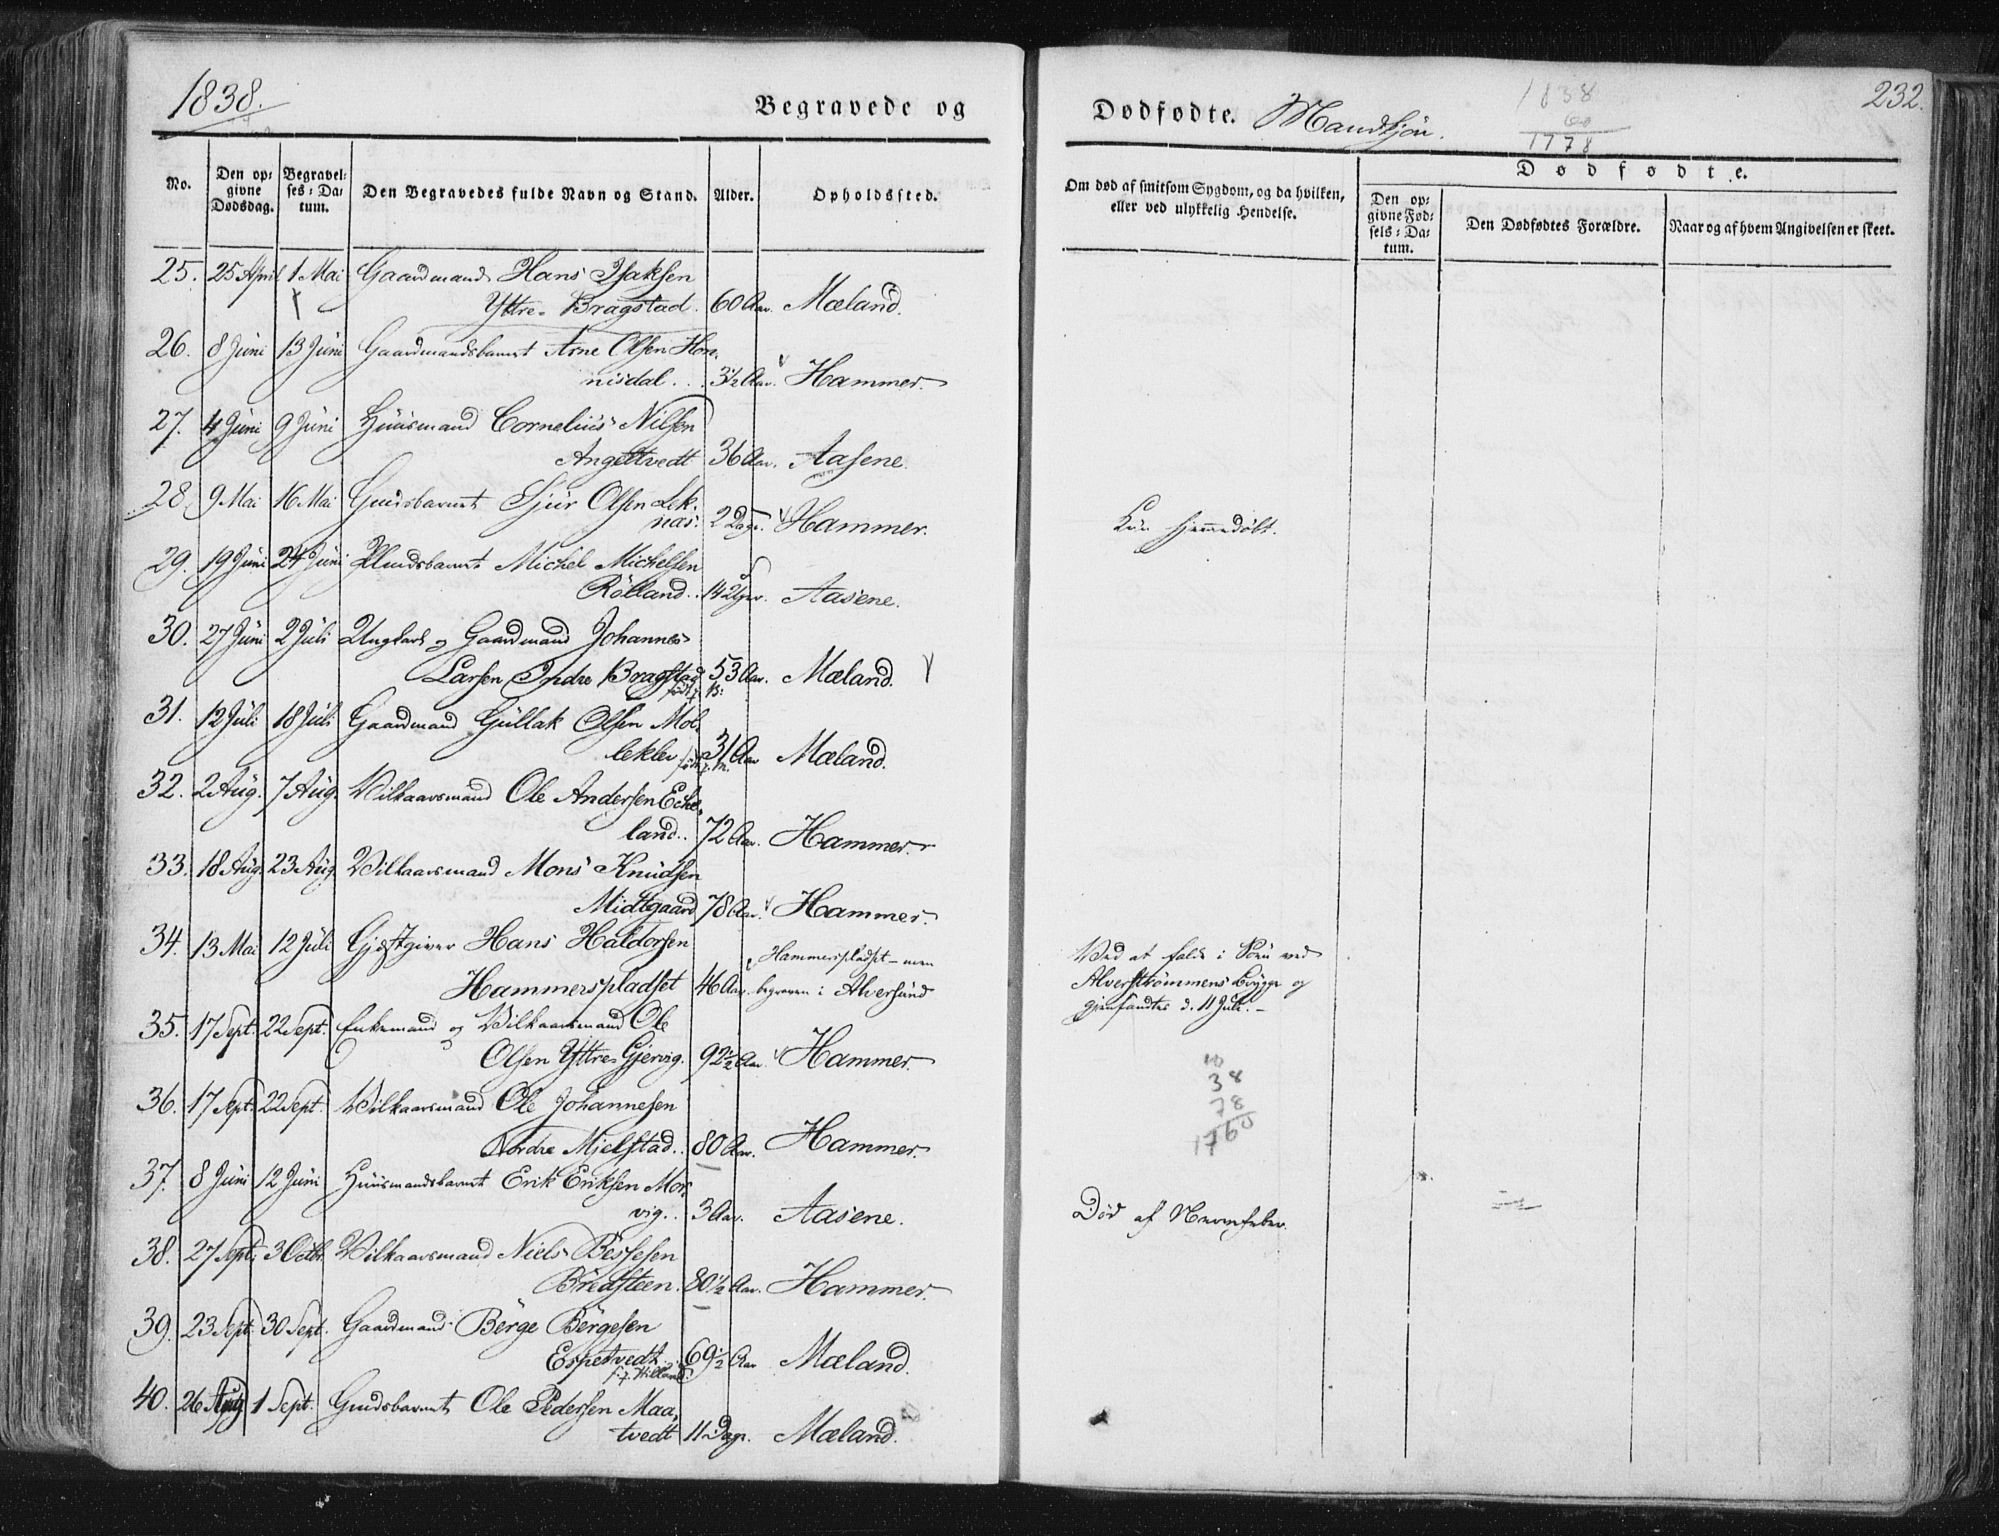 1838.
Begravede og
No.
Den op-
givne
Dødsdag.
Begravel-
ses-Da-
tum.
Den Begravedes fulde Navn og Stand.
Alder.
Opholdssted.
25. 25 April 1 Mai Gaardmand Hans Isaksen
Yttre Bragstad. 60 Aar. Mæland.
26. 8 Juni 13 Juni Gaardmandsbarnet Arne Olsen Hon-
nisdal. 3½ Aar. Hammer.
27. 4 Juni 9 Juni Huusmand Cornelius Nilsen
Angeltvedt 36 Aar. Aasene.
28. 9 Mai 16 Mai Olsen Lek-
næs. 2 Dage. Hammer.
29. 19 Juni 24 Juni Michel Michelsen
Rölland. 14 Uger. Aasene.
30. 27 Juni 2 Juli Ungkarl og Gaardmand Johannes
Larsen Indre Bragstad 53 Aar. Mæland.
31. 12 Juli 18 Juli Gaardmand Gullak Olsen Mol-
leklev 31 Aar Mæland.
32. 2 Aug. 7 Aug. Vilkaarsmand Ole Andersen Eche-
land. 72 Aar. Hammer.
33. 18 Aug. 23 Aug. Vilkaarsmand Mons Knudsen
Midtgaard 78 Aar. Hammer.
34. 13 Mai 12 Juli Gjæstgiver Hans Haldorsen
Hammerspladset 46 Aar. Hammerspladset - men
begraven i Alversund
35. 17 Sept. 22 Sept. Enkemand og Vilkaarsmand Ole
Olsen Yttre Gjervig. 92½ Aar. Hammer.
36. 17 Sept. 22 Sept. Vilkaarsmand Ole Johannesen
Nordre Mjelstad. 80 Aar. Hammer.
37. 8 Juni 12 Juni Huusmandsbarnet Erik Eriksen Mor-
vig. 3 Aar. Aasene.
38. 27 Sept. 3 Octbr. Vilkaarsmand Niels Bessesen
Bredsteen. 80½ Aar. Hammer.
39. 23 Sept. 30 Sept. Gaardmand Börge Börgesen
Espetvedt 69½ Aar Mæland.
40. 26 Aug 1 Sept. Ole Pedersen Maa-
tvedt 11 Dage. Mæland.
Dødfødte. Mandkjön.
1838
60
1778
232.
Om død af smitsom Sygdom, og da hvilken,
eller ved ulykkelig Hendelse.
Dødfødte.
Den op-
givne Fød-
sels-Da-
tum.
Den Dødfødtes Forældre.
Naar og af hvem Angivelsen er skeet.
Kun hjemmedöbt.
Ved at falde i Söen ved
Alverströmmens Brygge og
gjenfandtes d. 11 Juli.
10
38
78
1760
Död af Nervefeber.